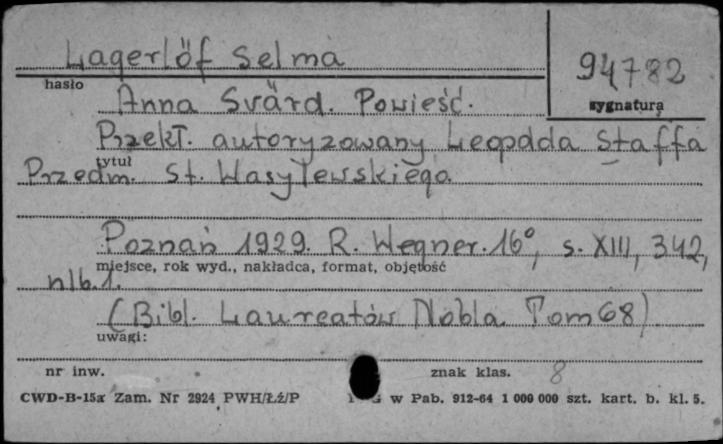 Lagerlöf Selma
94782
hasło
sygnatura
Anna Svärd. Powieść.
Przekł. autoryzowany Leopolda Staffa
tytuł
Przedm. St. Wasylewskiego.
Poznań 1929. R. Wegner. 16°, s. XIII, 342,
miejsce, rok wyd., nakładca, format, objętość
nlb. 1.
(Bibl. Laureatów Nobla. Tom 68)
uwagi:
nr inw.
znak klas. 8
CWD-B-15a Zam. Nr 2924 PWH/ŁŹ/P
w Pab. 912-64 1 000 000 szt. kart. b. kl. 5.